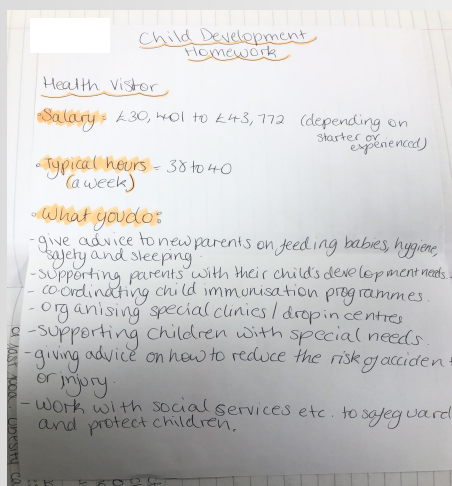 Child Development
Homework
Health Vistor
• Salary = £30,401 to £43,772 (depending on
starter or
experienced)
• Typical hours = 38 to 40
(a week)
• What you do:
- give advice to new parents on feeding babies, hygiene,
safety and sleeping.
- supporting parents with their child's development needs.
- co-ordinating child immunisation programmes.
- organising special clinics / drop in centres
- supporting children with special needs.
- giving advice on how to reduce the risk of acciden
or injury.
- work with social services etc. to safeguard
and protect children.